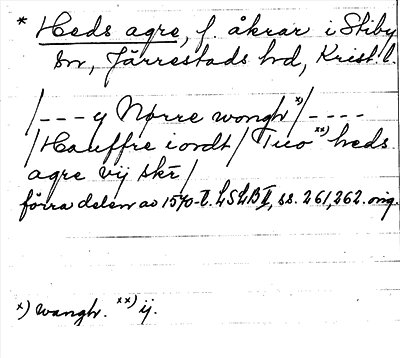 * Heds agre, f. åkrar i Stiby
sn, Järrestads hd, Krist. l.
/--- y Nørre wongh x)/----
/Hauffre iordt/ Tuo xx) heds
agre vij skr/
förra delen av 1570-t. LSLB II, ss. 261, 262. orig.
x) wangh. xx) ij.